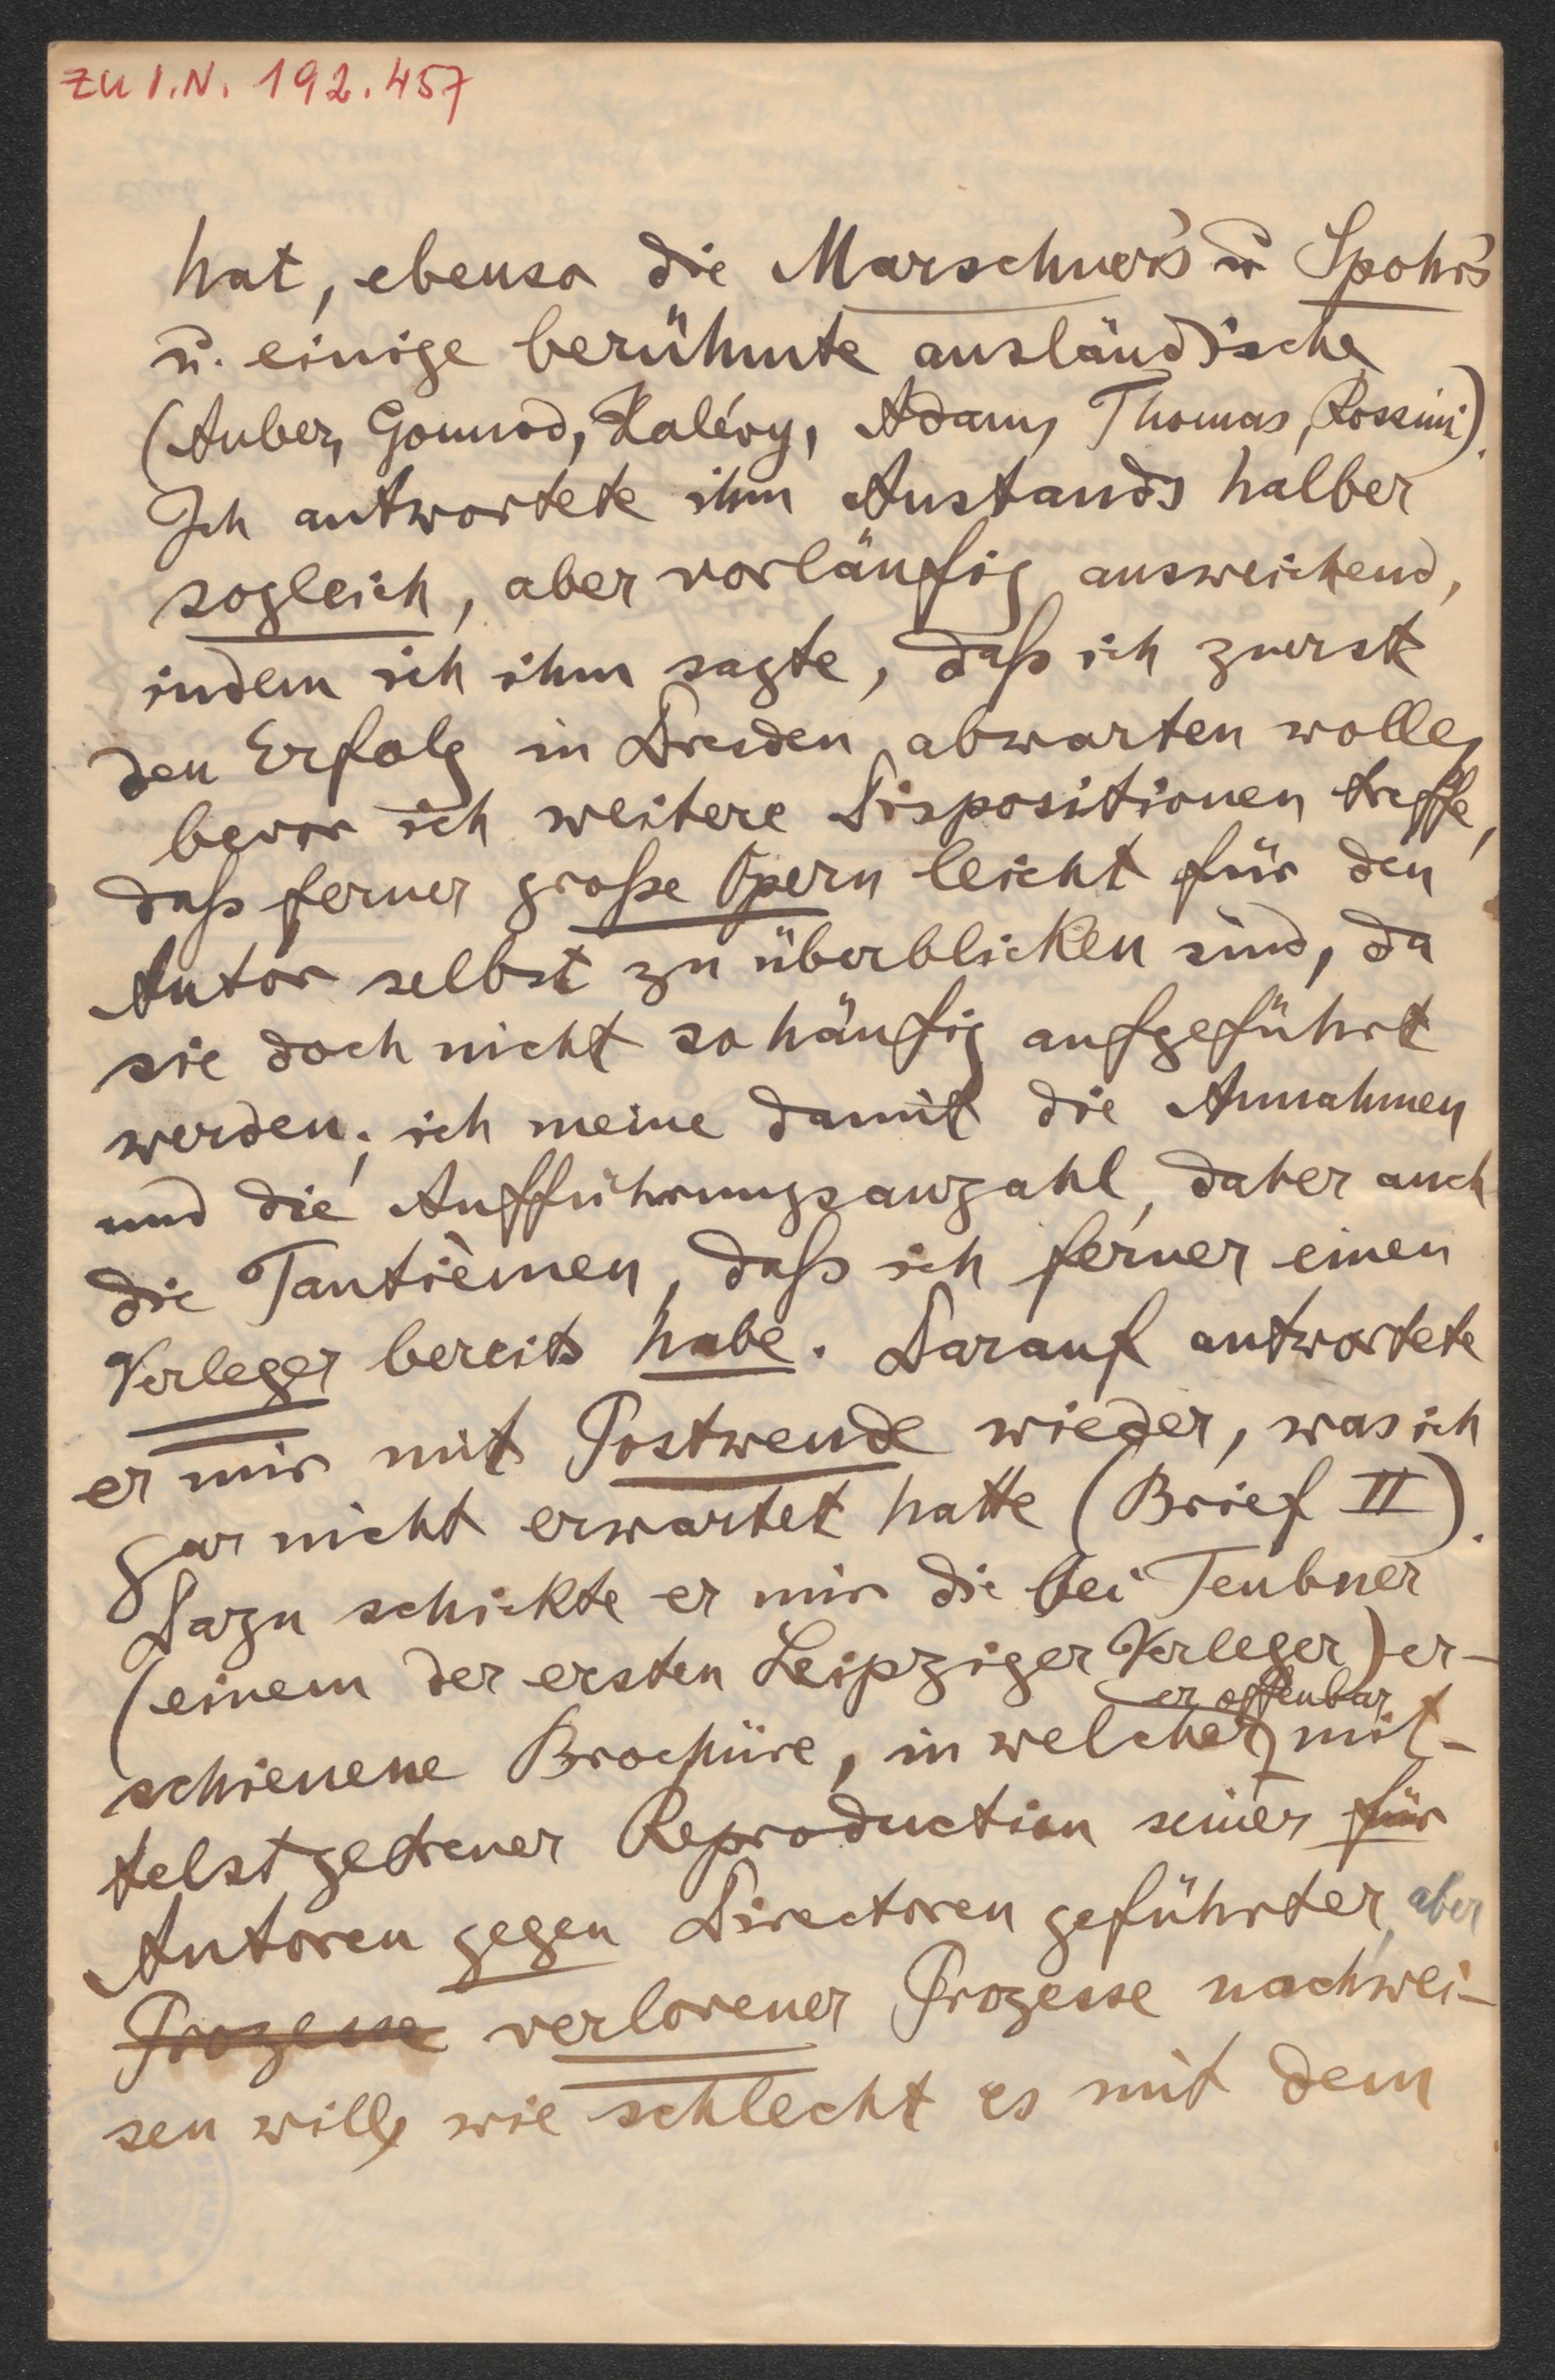 ZU I.N. 192.457
hat, ebenso die Marschner's u Spohr's
u. einige berühmte ausländische
(Auber, Gounod, Halévy, Adam, Thomas, Rossini).
Ich antwortete ihm Anstands halber
sogleich, aber vorläufig ausweichend,
indem ich ihm sagte, daß ich zuerst
den Erfolg in Dresden abwarten wolle,
bevor ich weitere Dispositionen treffe,
daß ferner große Opern leicht für den
Autor selbst zu überblicken sind, da
sie doch nicht so häufig aufgeführt
werden; ich meine damit die Annahmen
und die Aufführungsanzahl, daher auch
die Tantièmen, daß ich ferner einen
Verleger bereits habe. Darauf antwortete
er mir mit Postwende wieder, was ich
gar nicht erwartet hatte (Brief II).
Dazu schickte er mir die bei Teubner
(einem der ersten Leipziger Verleger) er-
er offenbar
schienene Brochüre, in welcher mit-
telst getreuer Reproduction seiner für
Autoren gegen Directoren geführter, aber
Prozesse verlorener Prozesse nachwei-
sen will, wie schlecht es mit dem